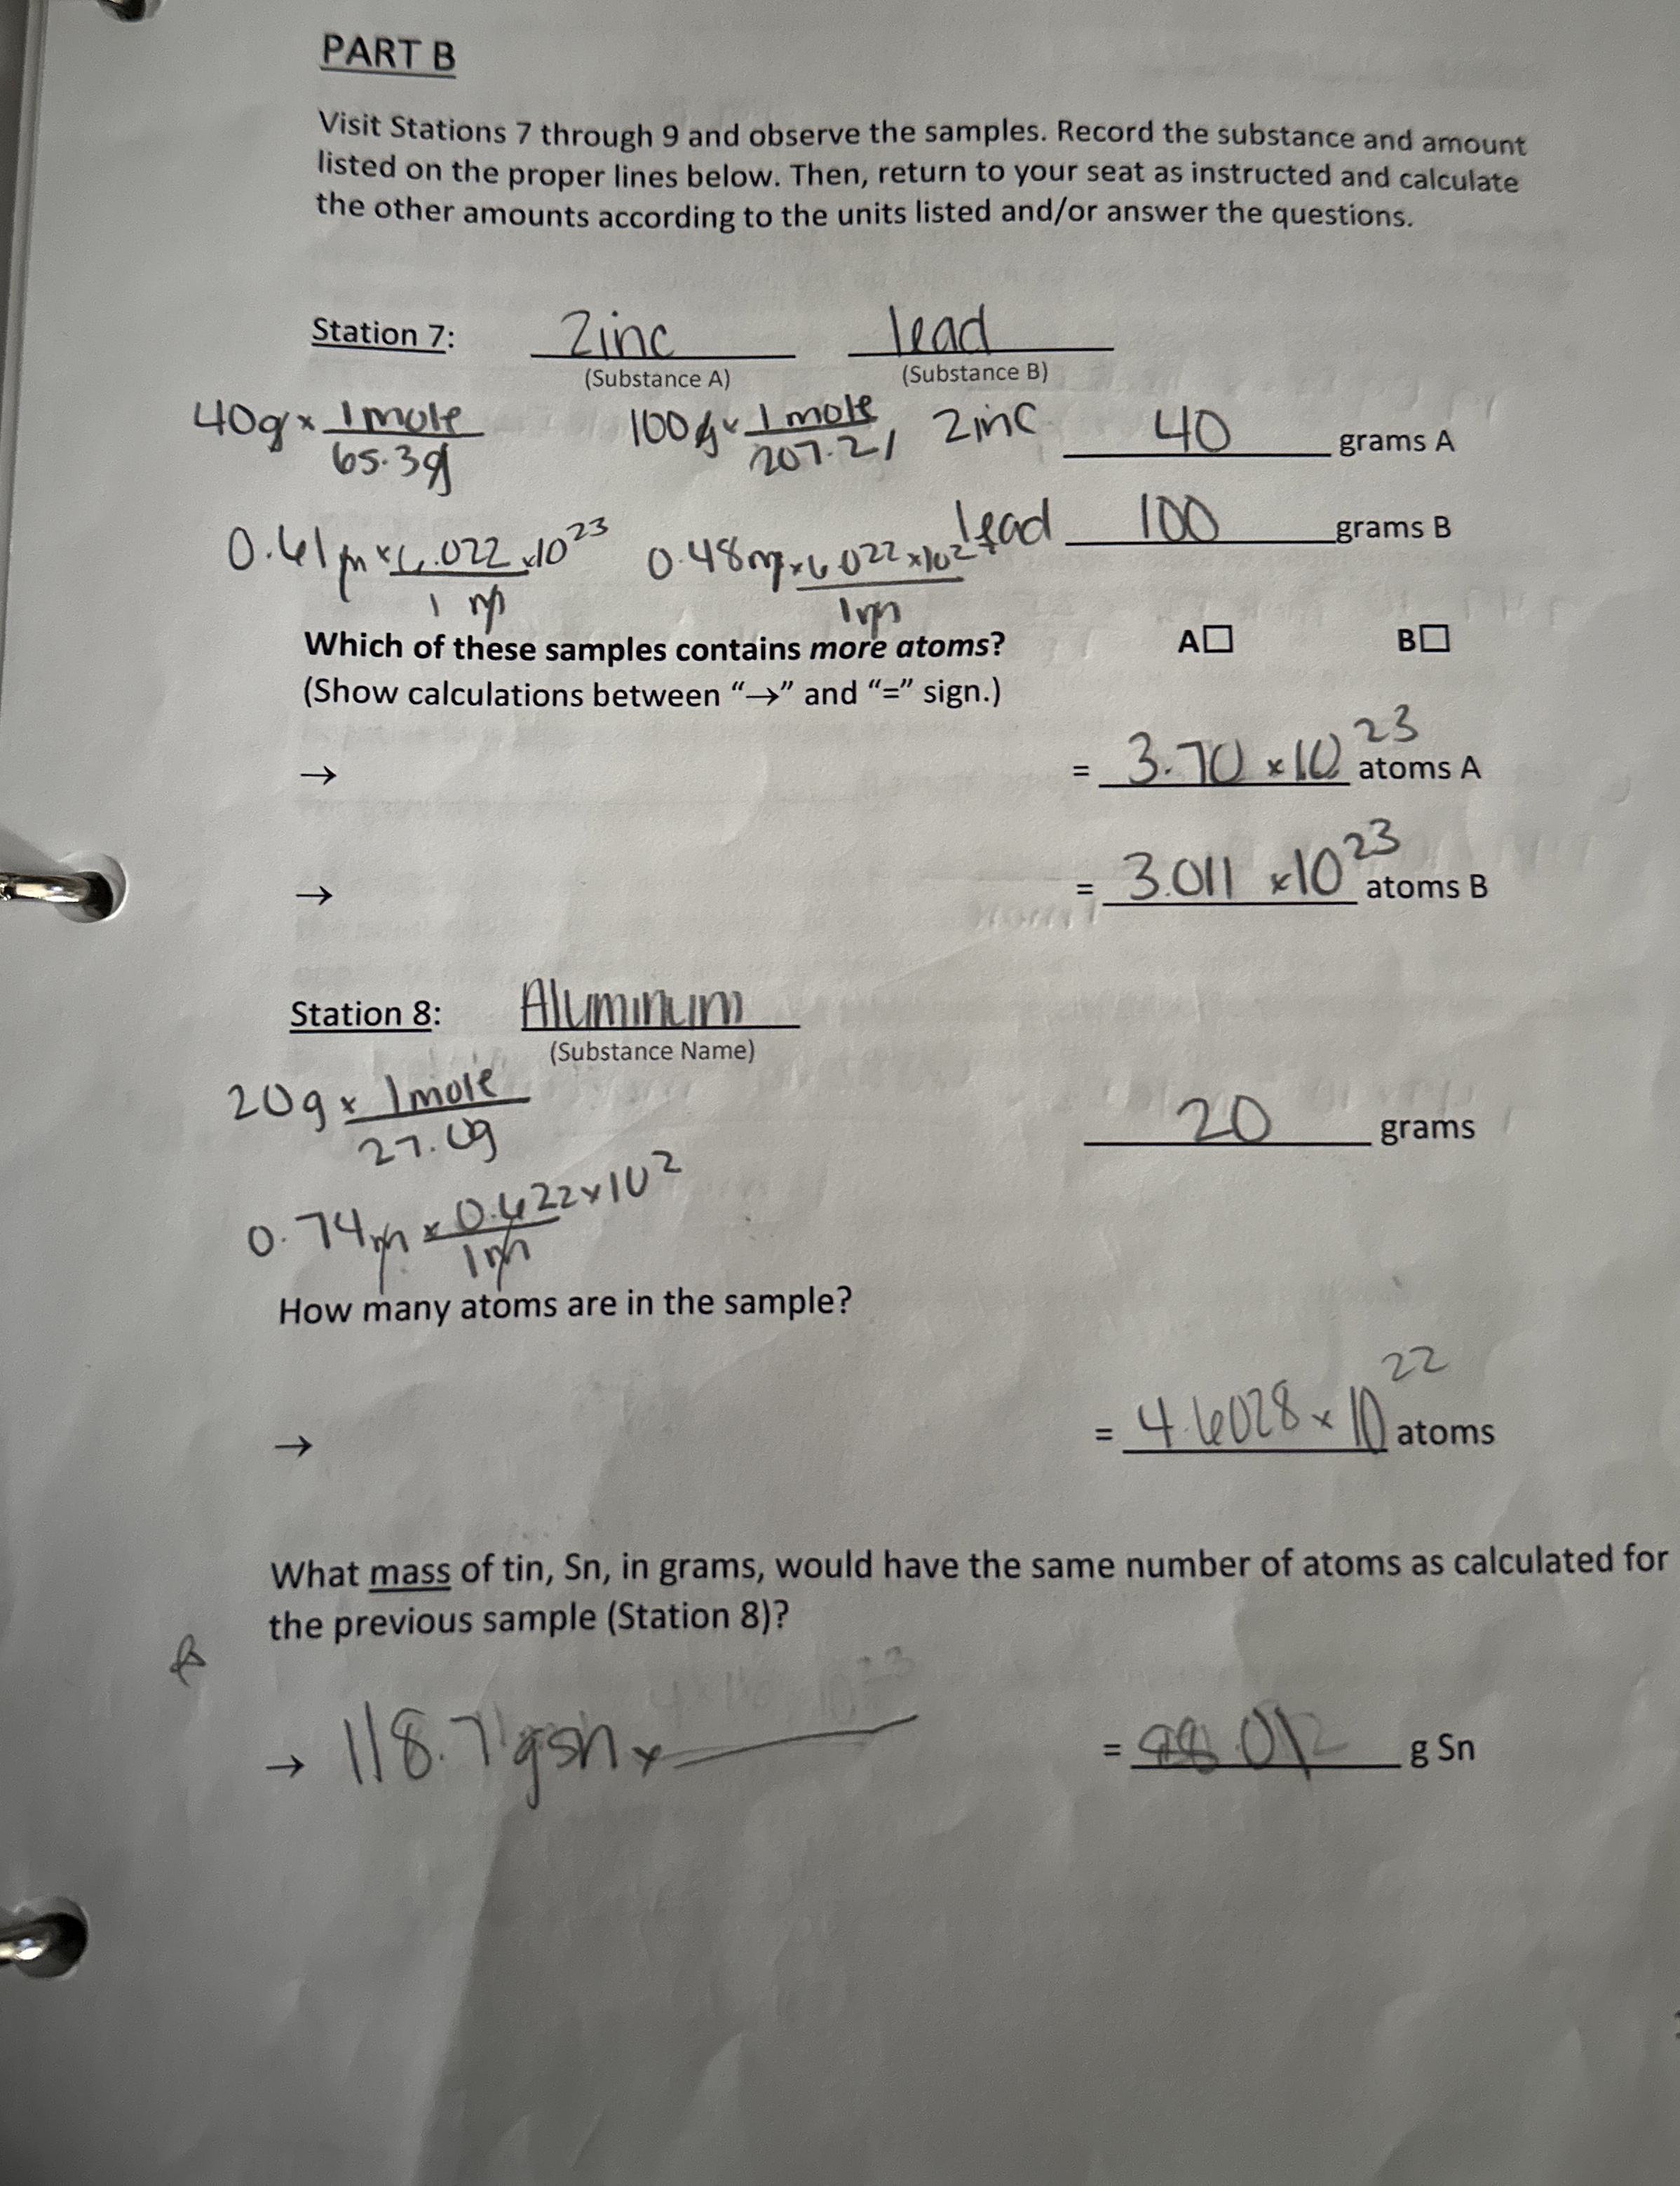 PART B
Visit Stations 7 through 9 and observe the samples. Record the substance and amount
listed on the proper lines below. Then, return to your seat as instructed and calculate
the other amounts according to the units listed and/or answer the questions.
Station 7: Zinc lead
(Substance A) (Substance B)
40g × 1 mole 100g × 1 mole Zinc 40 grams A
65.3g 207.21
0.61m × 6.022 × 10^23 0.48m × 6.022 × 10^2 lead 100 grams B
1 m 1m
Which of these samples contains more atoms? A☐ B☐
(Show calculations between “→” and “=” sign.)
→ = 3.70 × 10^23 atoms A
→ = 3.011 × 10^23 atoms B
Station 8: Aluminum
(Substance Name)
20g × 1 mole
27.0g 20 grams
0.74m × 0.622 × 10^2
1m
How many atoms are in the sample?
→ = 4.6028 × 10^22 atoms
What mass of tin, Sn, in grams, would have the same number of atoms as calculated for
the previous sample (Station 8)?
→ 118.71gsn × = g Sn